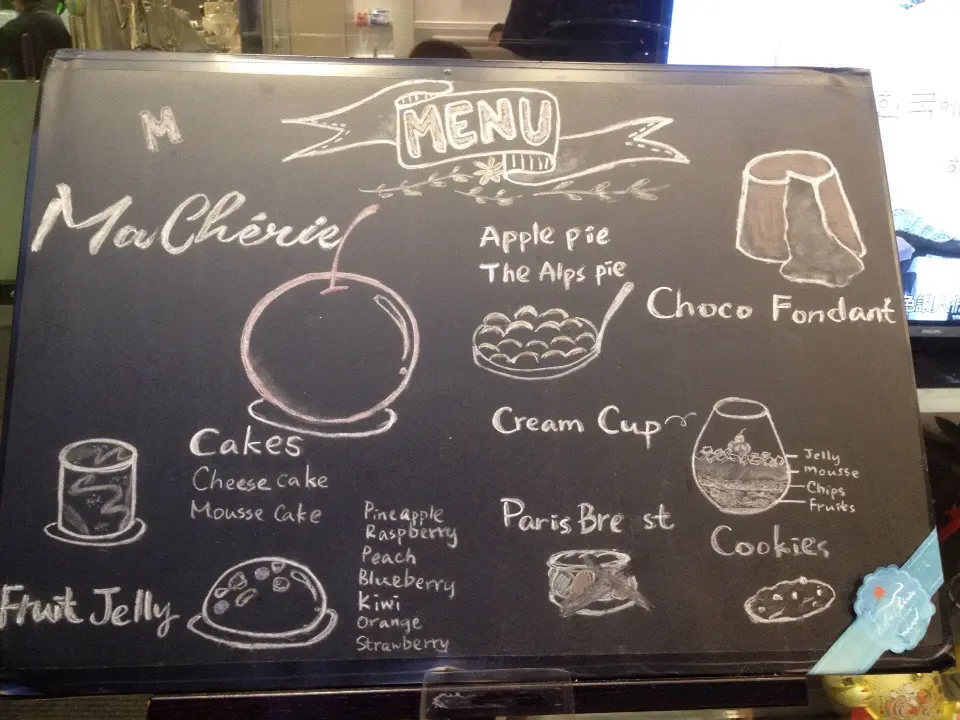 M
MENU
MaChérie
Apple pie
The Alps pie
Choco Fondant
Cream Cup
Jelly
Mousse
Chips
Fruits
Cakes
Cheese cake
Mousse Cake
Paris Bre st
Cookies
Fruit Jelly
Pineapple
Raspberry
Peach
Blueberry
Kiwi
Orange
Strawberry
PHILIPS